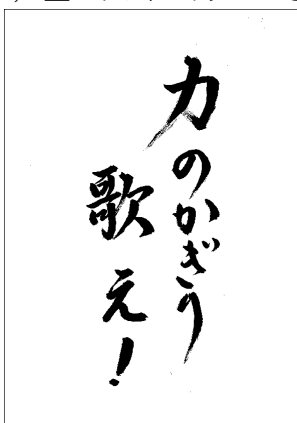 力のかぎり
歌え!